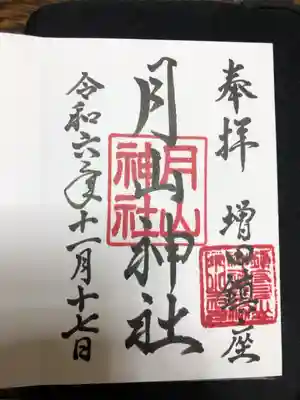 奉拝 増田鎮座
月山神社
月山
神社
令和六年十一月十七日